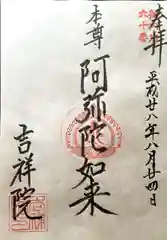 奉拝
平成廿八年八月廿四日
本尊
阿弥陀如来
吉祥院